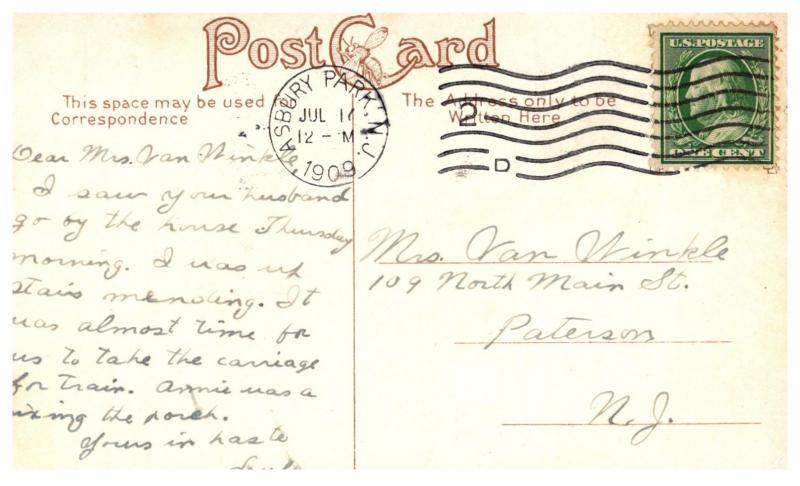 Post Card
This space may be used
Correspondence
The Address only to be
Written Here
ASBURY PARK, N.J.
JUL 17
12 - M
1909
2
D
U.S. POSTAGE
ONE CENT
Dear Mrs. Van Winkle
I saw your husband
go by the house Thursday
morning. I was up
stairs mending. It
was almost time for
us to take the carriage
for train. Annie was a
ixing the porch.
Yours in haste
Mrs. Van Winkle
109 North Main St.
Paterson
N.J.